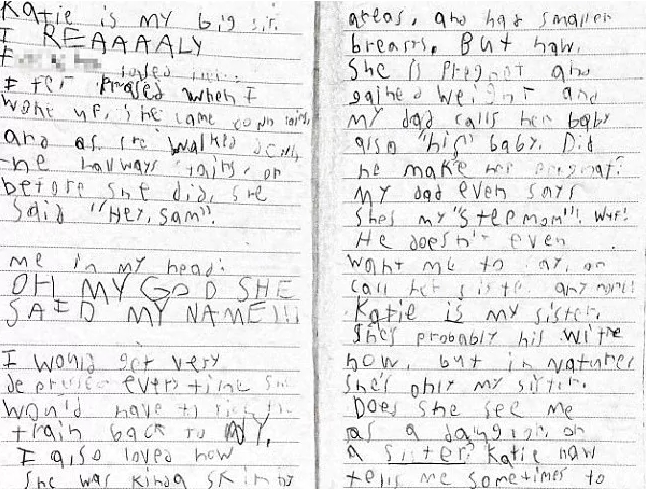 Katie is my big sis.
I REAAAALY
I when I
woke up, she came down
and as she walked down
the hallways or
before she did, she
said "Hey, Sam".
me in my head:
OH MY GOD SHE
SAID MY NAME!!!
I would get very
every time she
would have to
train back to NY.
I also loved how
she was kinda skinny
areas, and had smaller
breasts. But now,
she is pregnet and
gained weight and
my dad calls her baby
also "his" baby. Did
he make her
my dad even says
shes my "stepmom"!
He doesn't even
want me to say, or
call her sister any more!
Katie is my sister.
She's probably his wife
now, but in
She's only my sister.
Does she see me
as a or
a sister? Katie now
tells me sometimes to